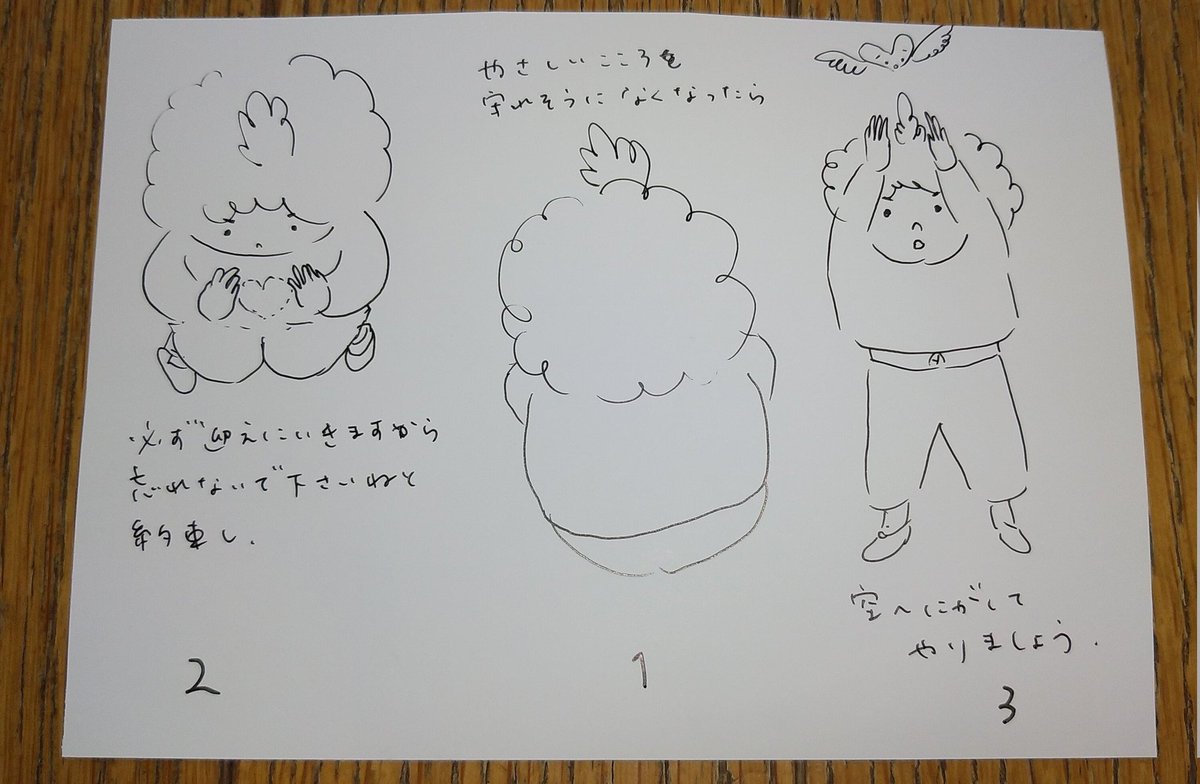 やさしいこころを
守れそうになくなったら
1
必ず迎えにいきますから
忘れないで下さいねと
約束し.
2
空へにがして
やりましょう.
3